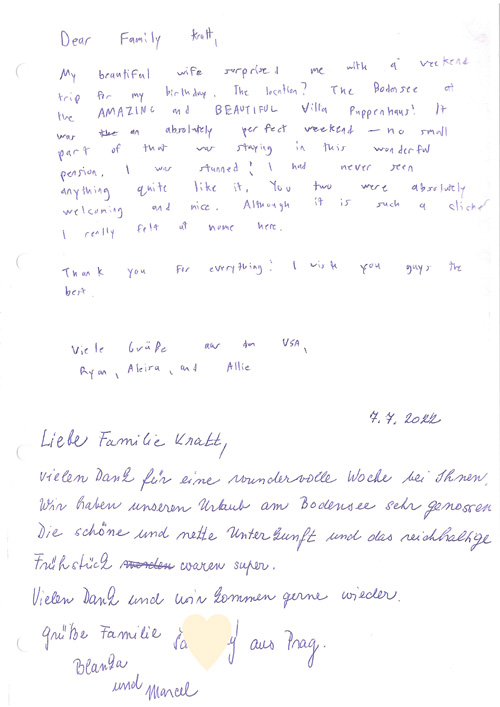 Dear Family Kratt,
My beautiful wife surprised me with a weekend
trip for my birthday. The location? The Bodnsee at
the AMAZING and BEAUTIFUL Villa Puppenhaus! It
was the an absolutely perfect weekend – no small
part of that was staying in this wonderful
pension. I was stunned! I had never seen
anything quite like it. You two were absolutely
welcoming and nice. Although it is such a cliche
I really felt at home here.
Thank you for everything! I wish you guys the
best.
Viele Grüße aus den USA,
Ryan, and Allie
7.7.2022
Liebe Familie Kratt,
vielen Dank für eine wundervolle Woche bei Ihnen.
Wir haben unseren Urlaub am Bodensee sehr genossen
Die schöne und nette Unterkunft und das reichhaltige
Frühstück werden waren super.
Vielen Dank und wir kommen gerne wieder.
Grüße Familie aus Prag.
Blanka
und Marcel